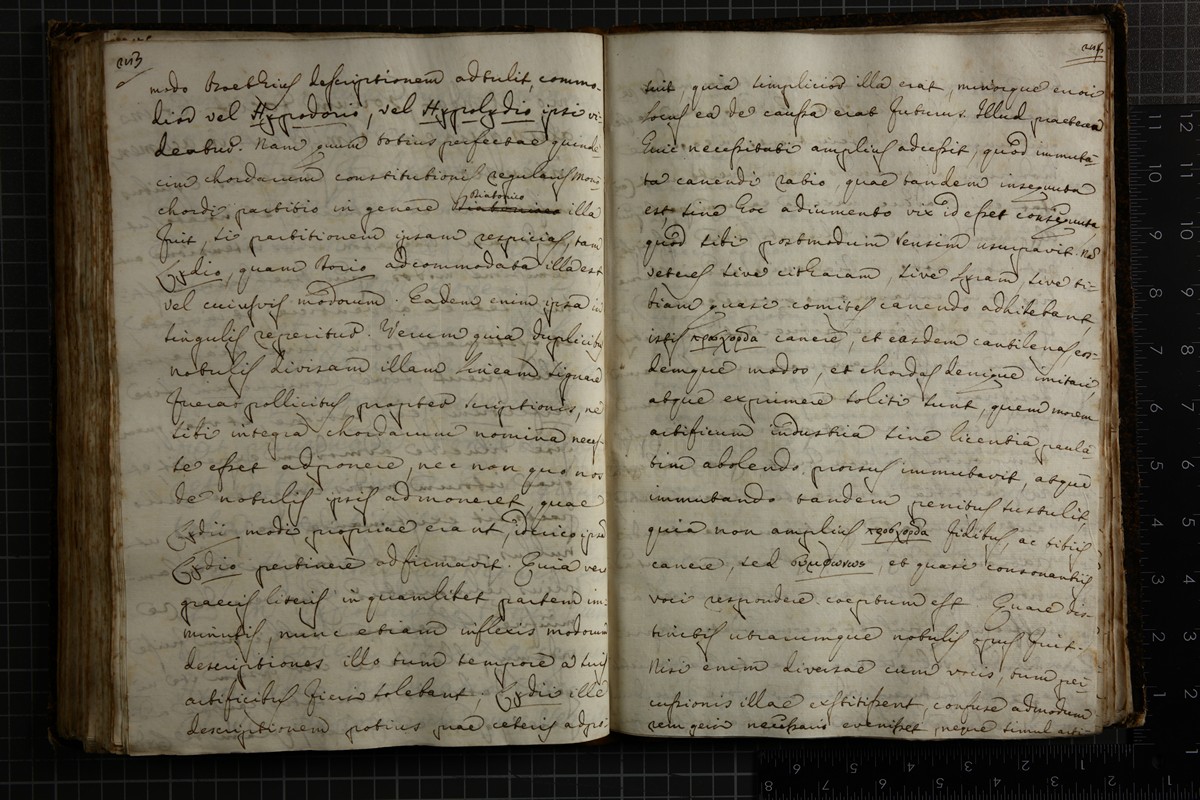 modo Boethius descriptionem adtulit, commo-
dior vel Hypodorio, vel Hypolydio ipsi vi-
deatur. Nam quum totius perfectae quinde-
cim chordarum constitutionis regularis Mono-
chordi partitio in genere Diatonico illa
fuit, si partitionem ipsam respicias, tam
Lydio, quam Dorio adcommodata illa est
vel cuiusvis modorum. Eadem enim ipsa in
singulis reperitur. Verum quia duplicibus
notulis divisam illam lineam signare
fuerat pollicitus, propter scriptionis, ne
tibi integra chordarum nomina neces-
se esset adponere, nec non quo nos
de notulis ipsis admoneret, quae
Lydii modi propriae erant, idcirco ipsi
Lydio pertinere adfirmavit. Quia vero
graecis literis in quamlibet partem im-
minutis, nunc etiam inflexis modorum
descriptiones illo tum tempore a suis
artificibus fieri solebant, Lydii ille
descriptionem potius prae ceteris adpo-
suit, quia simplicior illa erat, minorque errori
locus ea de caussa erat futurus. Illud praeterea
huic necessitati amplius adcessit, quod immuta-
ta canendi ratio, quae tandem insequuta
est sine hoc adiumento vix id esset consequuta
quod sibi postmodum sensim usurpavit. Nam
veteres sive citharam, sive lyram, sive ti-
biam quasi comites canendo adhibebant
istis προσχορδα canere, et easdem cantilenas eos-
demque modos, et chordas denique imitari,
atque exprimere soliti sunt, quem morem
artificum industria sine licentia paula-
tim abolendo prorsus immutavit, atque
immutando tandem penitus sustulit,
quia non amplius προσχορδα fidibus, ac tibiis
canere, sed συμφωνως, et quasi consonantiis
voci respondere coeptum est. Quare dis-
tinctis utrarumque notulis opus fuit.
Nisi enim diversae cum vocis, tum per-
cussionis illae exstitissent, confuse admodum
rem geri necessario evenisset, neque simul arti-